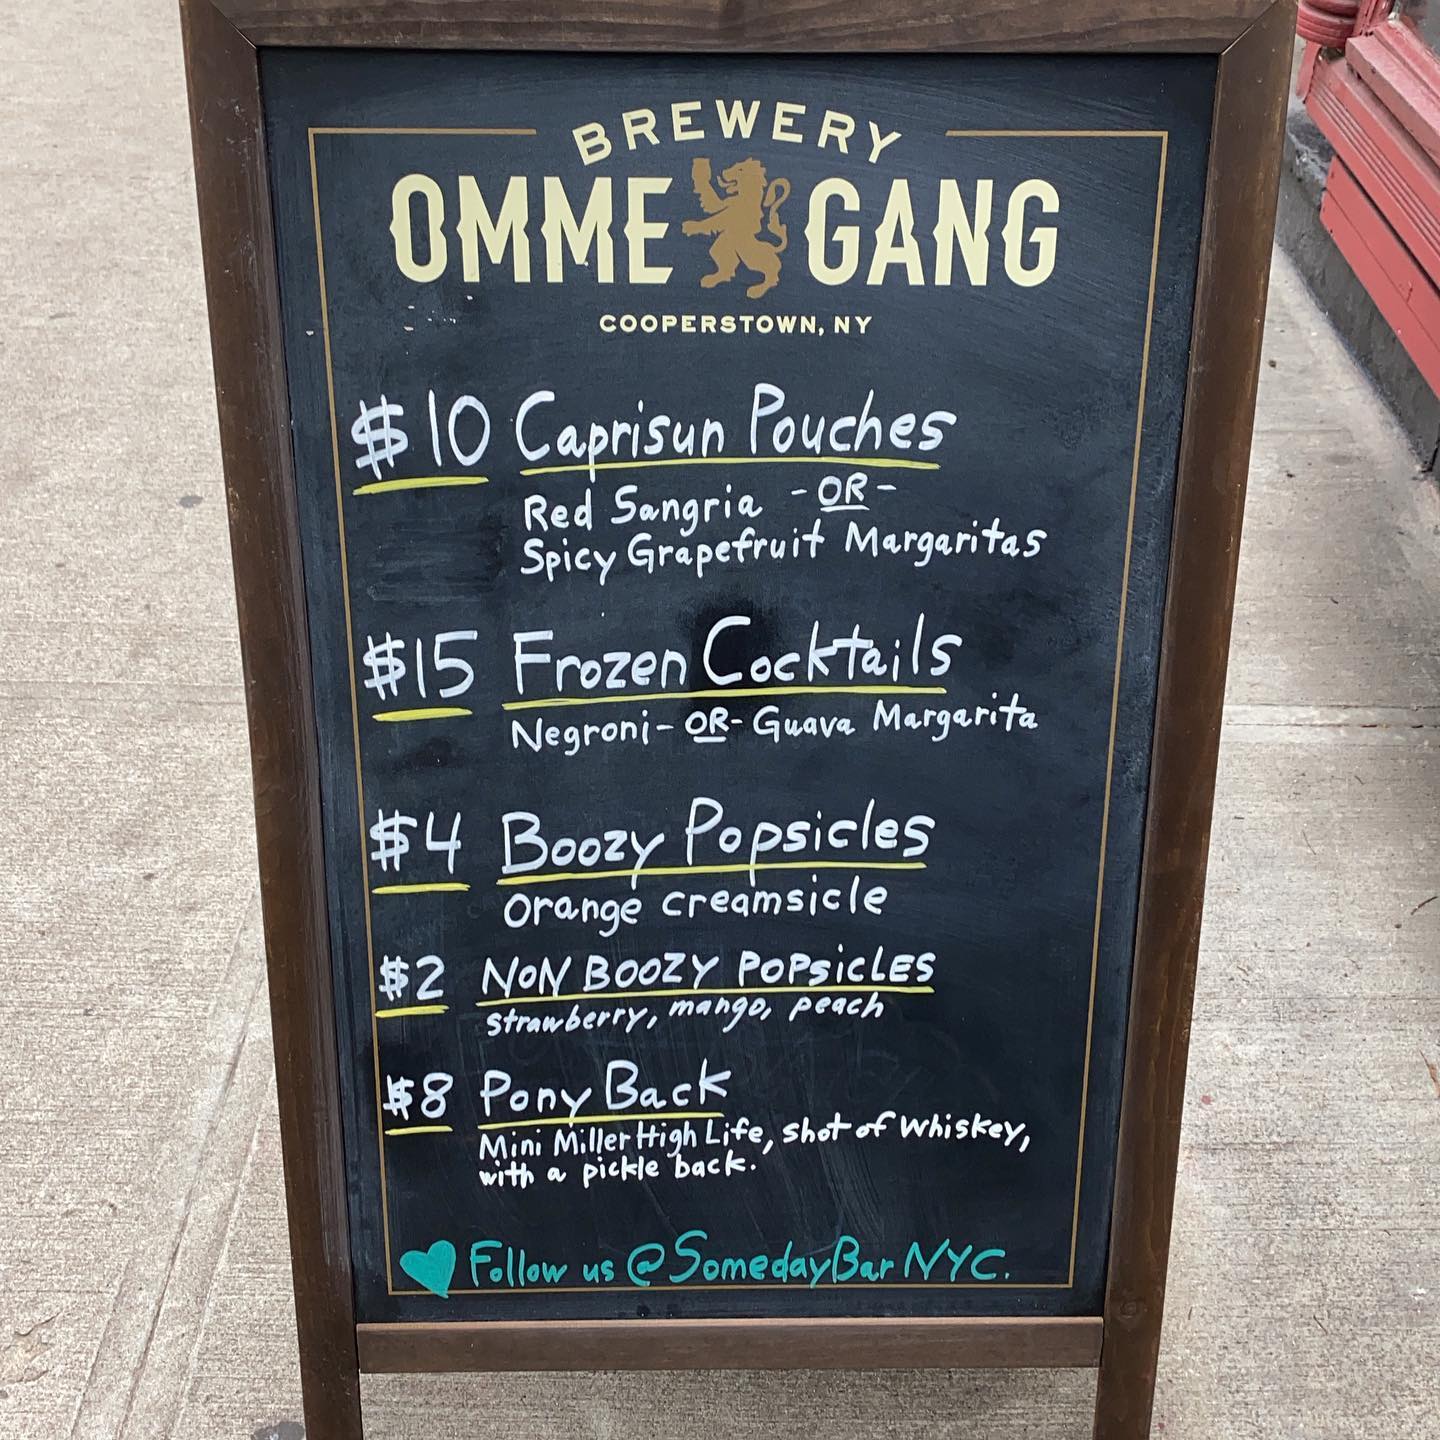 BREWERY
OMMEGANG
COOPERSTOWN, NY
$10 Caprisun Pouches
Red Sangria -OR-
Spicy Grapefruit Margaritas
$15 Frozen Cocktails
Negroni -OR- Guava Margarita
$4 Boozy Popsicles
orange creamsicle
$2 NON BOOZY POPSICLES
strawberry, mango, peach
$8 Pony Back
Mini Miller High Life, shot of whiskey,
with a pickle back.
Follow us @SomedayBarNYC.